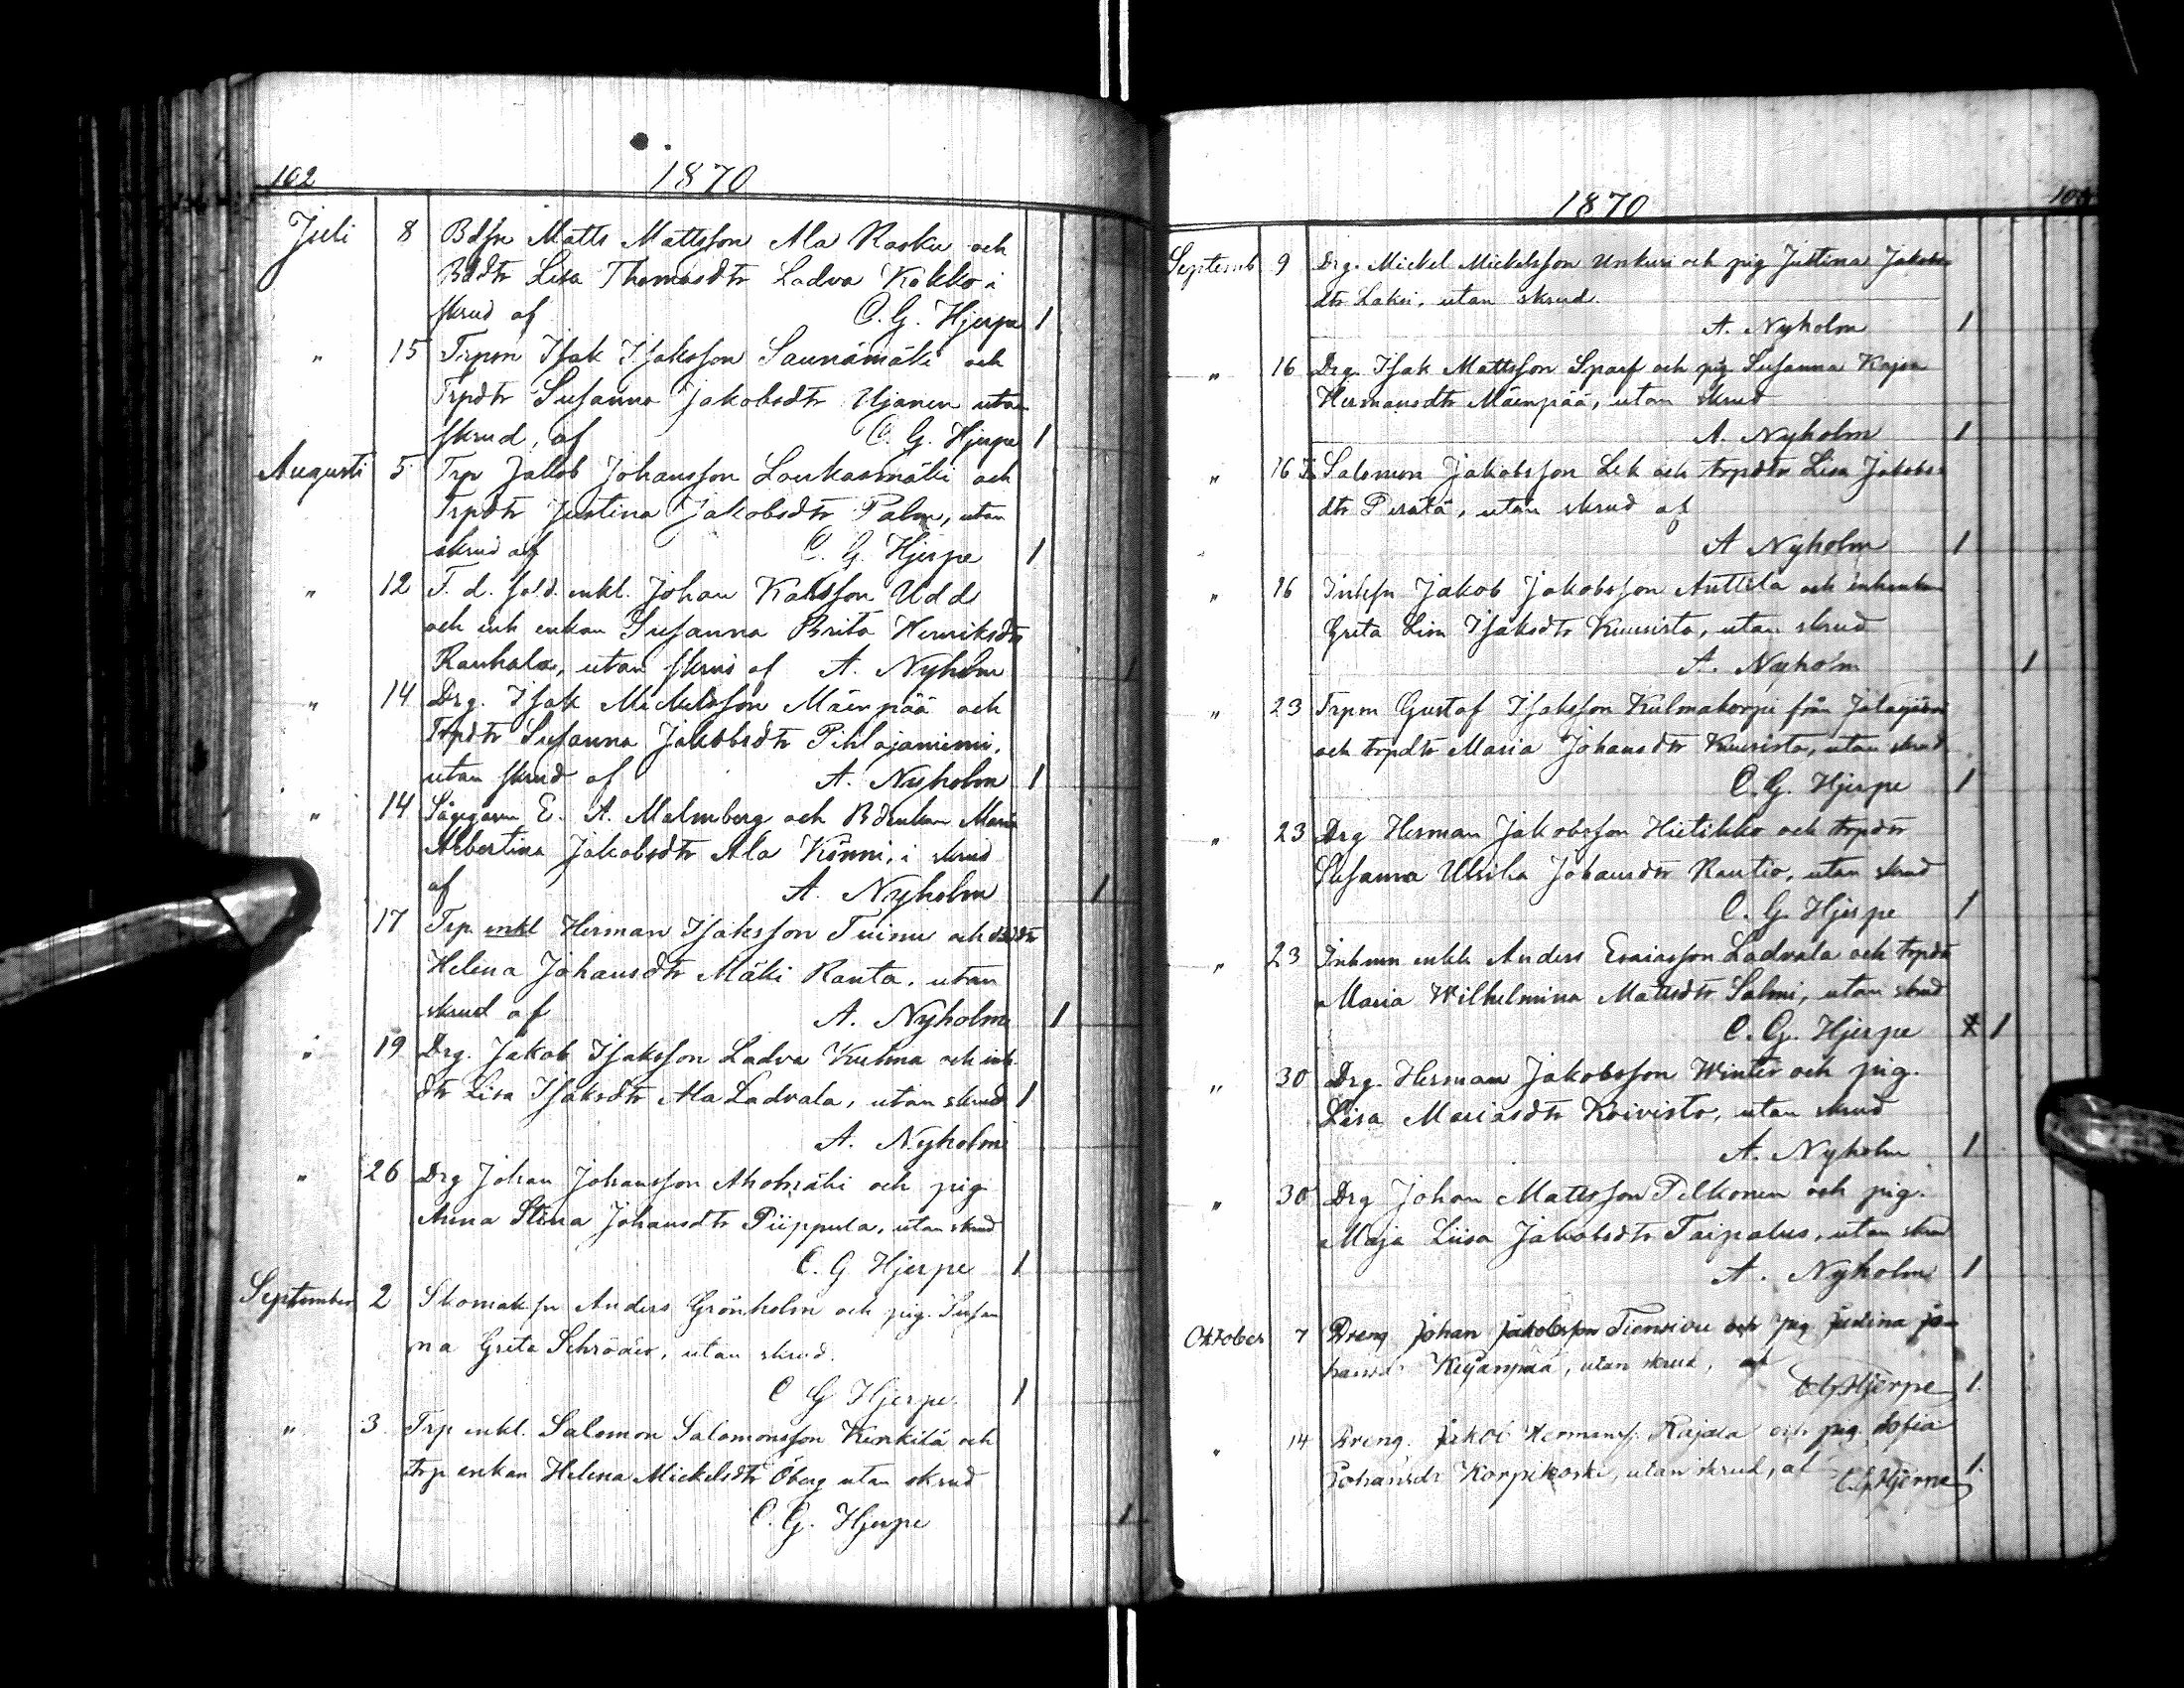 102
1870
Juli 8 Bdsn Matts Mattsson Ala Rasku och
Bddtr Lisa Thomasdtr Ladva Kokko i
skrud af C. G. Hjerpe 1
" 15 Trpsn Isak Isaksson Saunämäki och
Trpdtr Susanna Jakobsdtr Ujanen utan
skrud, af C. G. Hjerpe 1
Augusti 5 Trp Jakob Johansson Loukasmäki och
Trpdtr Justina Jakobsdtr Palm, utan
skrud af C. G. Hjerpe 1
" 12 F. d. sold. enkl. Johan Karlsson Udd
och inh enkan Susanna Brita Henriksdtr
Rauhala, utan skrud af A. Nyholm 1
" 14 Drg. Isak Mickelsson Mäenpää och
Trpdtr Susanna Jakobsdtr Pihlajaniemi,
utan skrud af A. Nyholm 1
" 14 Sågegaren E. A. Malmberg och Bdenkan Maria
Albertina Jakobsdtr Ala Könni, i skrud
af A. Nyholm 1
17 Trp. enkl Herman Isaksson Tuimu och
Helena Johansdtr Mäki Ranta, utan
skrud af A. Nyholm 1
" 19 Drg. Jakob Isaksson Ladva Kuhna och inh.
dtr Lisa Isaksdtr Ala Ladvala, utan skrud 1
A. Nyholm
" 26 Drg Johan Johansson Ahomäki och pig
Anna Stina Johansdtr Piippula, utan skrud
C. G Hjerpe 1
September 2 Skomak.sn Anders Grönholm och pig. Susan
na Greta Schröder, utan skrud.
C G Hjerpe. 1
" 3 Trp enkl. Salomon Salomonsson Kurkilä och
trp enkan Helena Mickelsdtr Öberg utan skrud
C. G. Hjerpe 1
1870
Septemb 9 Drg. Mickel Mickelsson Unkuri och pig Justina Jakobs
dtr Lakei, utan skrud.
A. Nyholm 1
" 16 Drg. Isak Mattsson Sparf och pig Susanna Kajsa
Hermansdtr Mäenpää, utan skrud
A. Nyholm 1
" 16 Salomon Jakobsson Lek och trpdtr Lisa Jakobs
dtr Perätä, utan skrud af
A Nyholm 1
" 16 Inhsn Jakob Jakobsson Anttila och inhenkan
Greta Lisa Isaksdtr Kuusisto, utan skrud
A. Nyholm 1
" 23 Trpsn Gustaf Isaksson Kulmakorpi från Jalasjärvi
och trpdtr Maria Johansdtr Kuusisto, utan skrud
C. G. Hjerpe 1
" 23 Drg Herman Jakobsson Hietikko och trpdtr
Susanna Ulrika Johansdtr Rautio, utan skrud
C. G. Hjerpe 1
" 23 Inhmn enkl. Anders Esaiasson Ladvala och trpdtr
Maria Wilhelmina Mattsdtr Salmi, utan skrud
C. G. Hjerpe 1
" 30 Drg. Herman Jakobsson Winter och pig.
Lisa Mariasdtr Koivisto, utan skrud
A. Nyholm 1
" 30 Drg Johan Mattsson Pelkonen och pig.
Maja Liisa Jakobsdtr Taipalus, utan skrud
A. Nyholm 1
Oktober 7 Dreng Johan Jakobsson Tiensivu och pig Justina Jo
hansd. , utan skrud, af
C G Hjerpe 1.
" 14 Dreng. Jakob Hermans. Rajala och pig. Sofia
Johansdr Korpikoski, utan skrud, af C G Hjerpe 1.